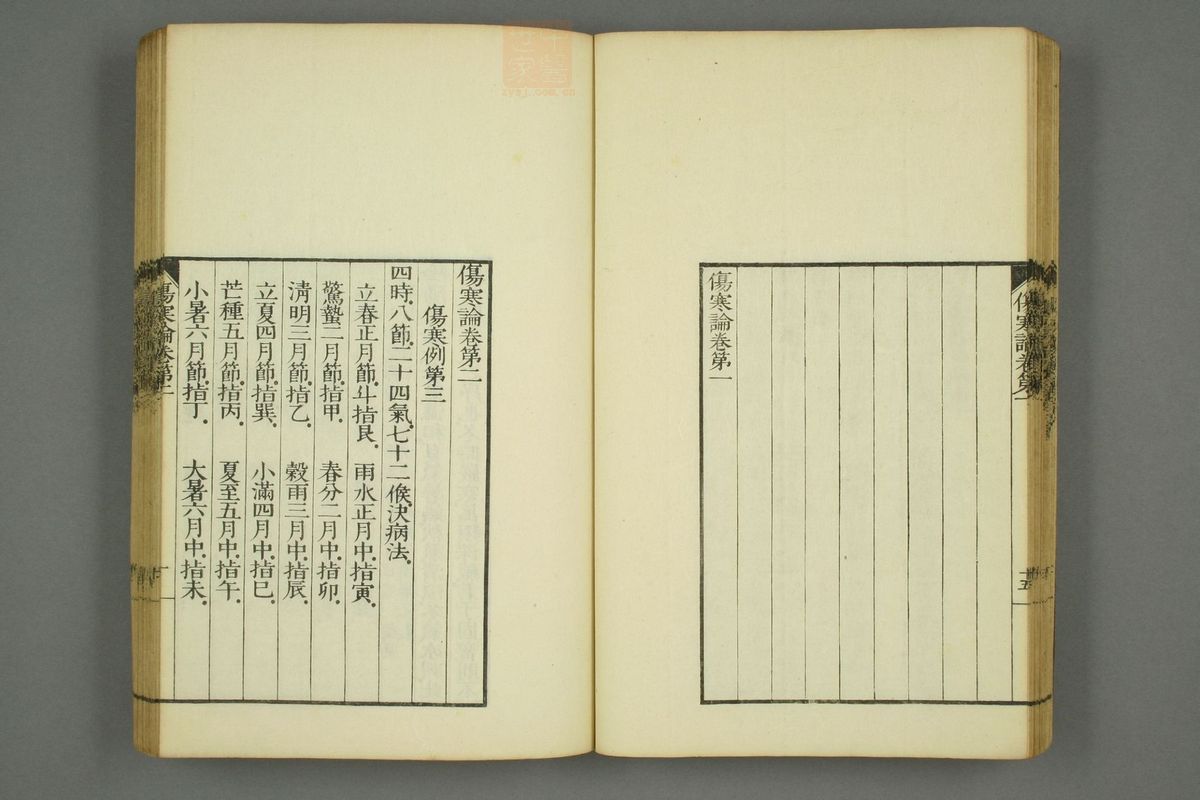 傷寒論卷第一
十五
傷寒論卷第一
傷寒論卷第二
傷寒例第三
四時。八節。二十四氣。七十二候。決病法。
立春正月節。斗指艮。 雨水正月中。指寅。
驚蟄二月節。指甲。 春分二月中。指卯。
清明三月節。指乙。 穀雨三月中。指辰。
立夏四月節。指巽。 小滿四月中。指巳。
芒種五月節。指丙。 夏至五月中。指午。
小暑六月節。指丁。 大暑六月中。指未。
傷寒論卷第二
一
中醫世家
zysj.com.cn